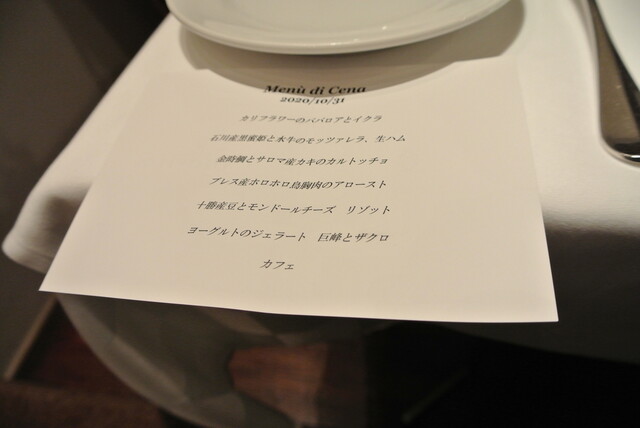 Menù di Cena
2020/10/31
カリフラワーのババロアとイクラ
石川産黒蜜姫と水牛のモッツァレラ、生ハム
金時鯛とサロマ産カキのカルトッチョ
ブレス産ホロホロ鳥胸肉のアロースト
十勝産豆とモンドールチーズ リゾット
ヨーグルトのジェラート 巨峰とザクロ
カフェ